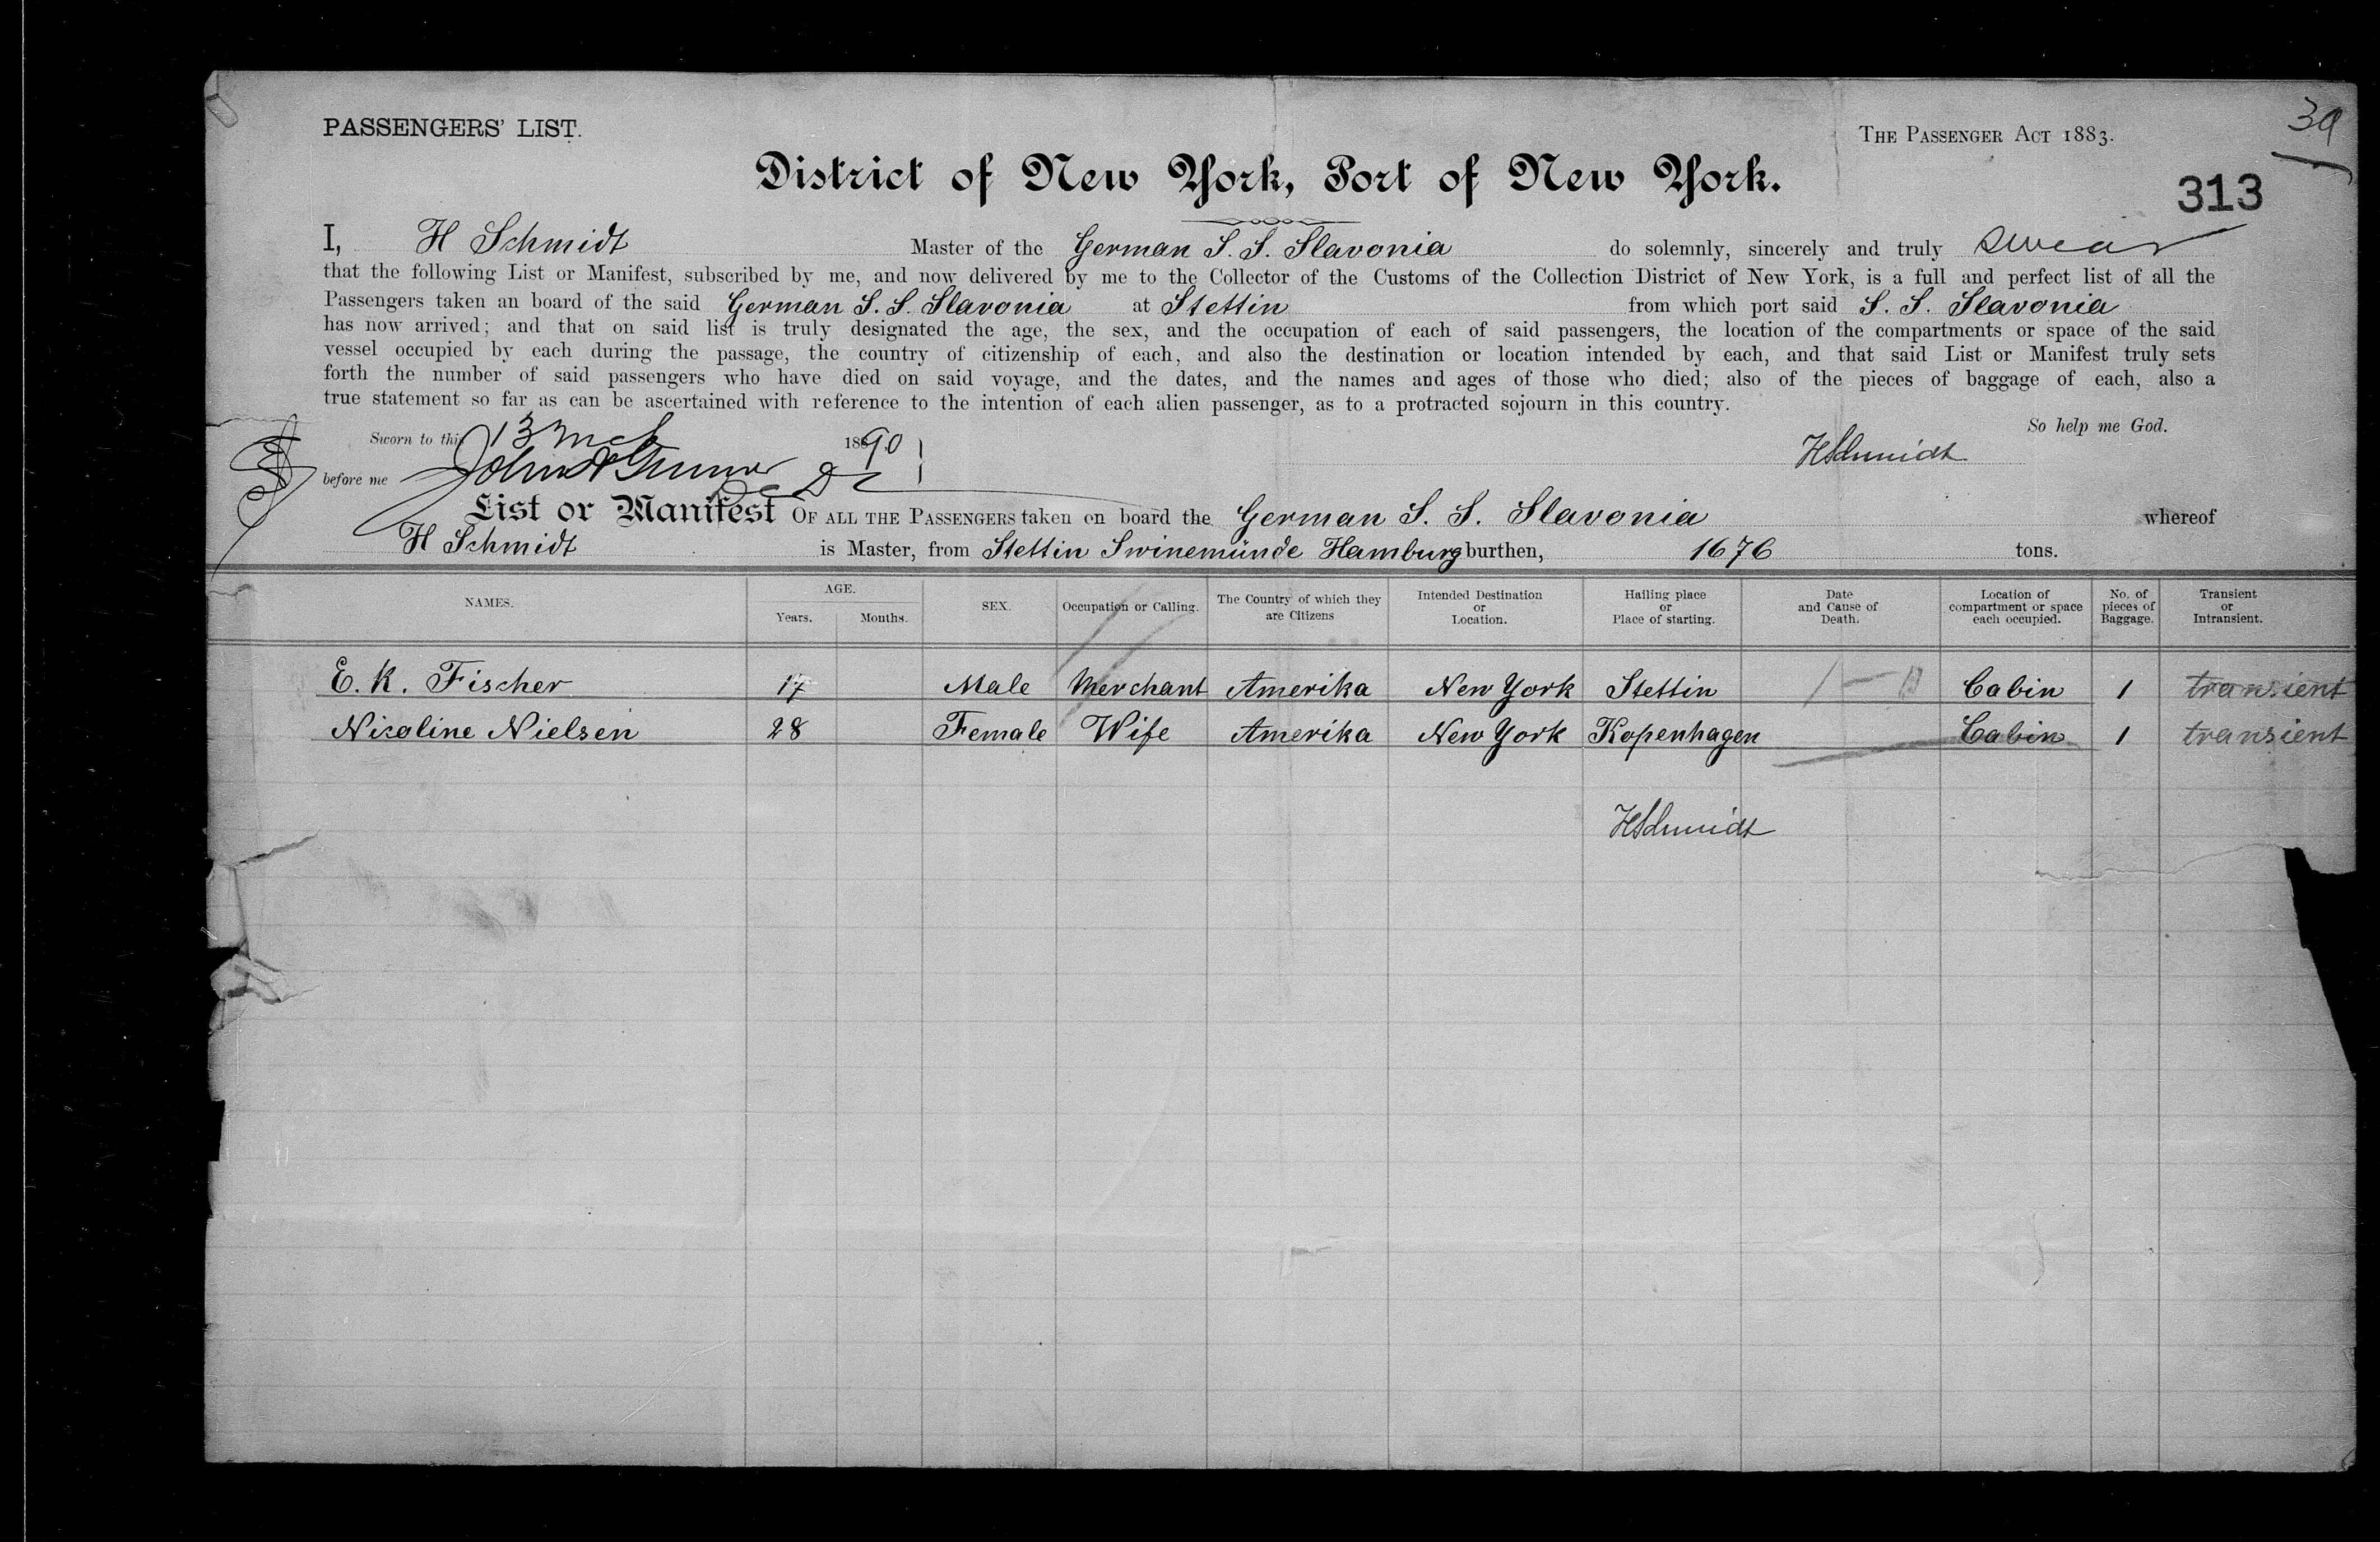 PASSENGERS' LIST.
THE PASSENGER ACT 1883.
39
District of New York, Port of New York.
313
I, H Schmidt Master of the German S. S. Slavonia do solemnly, sincerely and truly swear
that the following List or Manifest, subscribed by me, and now delivered by me to the Collector of the Customs of the Collection District of New York, is a full and perfect list of all the
Passengers taken an board of the said German S. S. Slavonia at Stettin from which port said S. S. Slavonia
has now arrived; and that on said list is truly designated the age, the sex, and the occupation of each of said passengers, the location of the compartments or space of the said
vessel occupied by each during the passage, the country of citizenship of each, and also the destination or location intended by each, and that said List or Manifest truly sets
forth the number of said passengers who have died on said voyage, and the dates, and the names and ages of those who died; also of the pieces of baggage of each, also a
true statement so far as can be ascertained with reference to the intention of each alien passenger, as to a protracted sojourn in this country.
So help me God.
Sworn to this 13 Mch 1890
HSchmidt
before me John
List or Manifest OF ALL THE PASSENGERS taken on board the German S. S. Slavonia whereof
H Schmidt is Master, from Stettin Swinemünde Hamburg burthen, 1676 tons.
NAMES. AGE. Years. Months. SEX. Occupation or Calling. The Country of which they are Citizens Intended Destination or Location. Hailing place or Place of starting. Date and Cause of Death. Location of compartment or space each occupied. No. of pieces of Baggage. Transient or Intransient.
E. K. Fischer 17 Male Merchant Amerika New York Stettin Cabin 1 transient
Nicoline Nielsen 28 Female Wife Amerika New York Kopenhagen Cabin 1 transient
HSchmidt